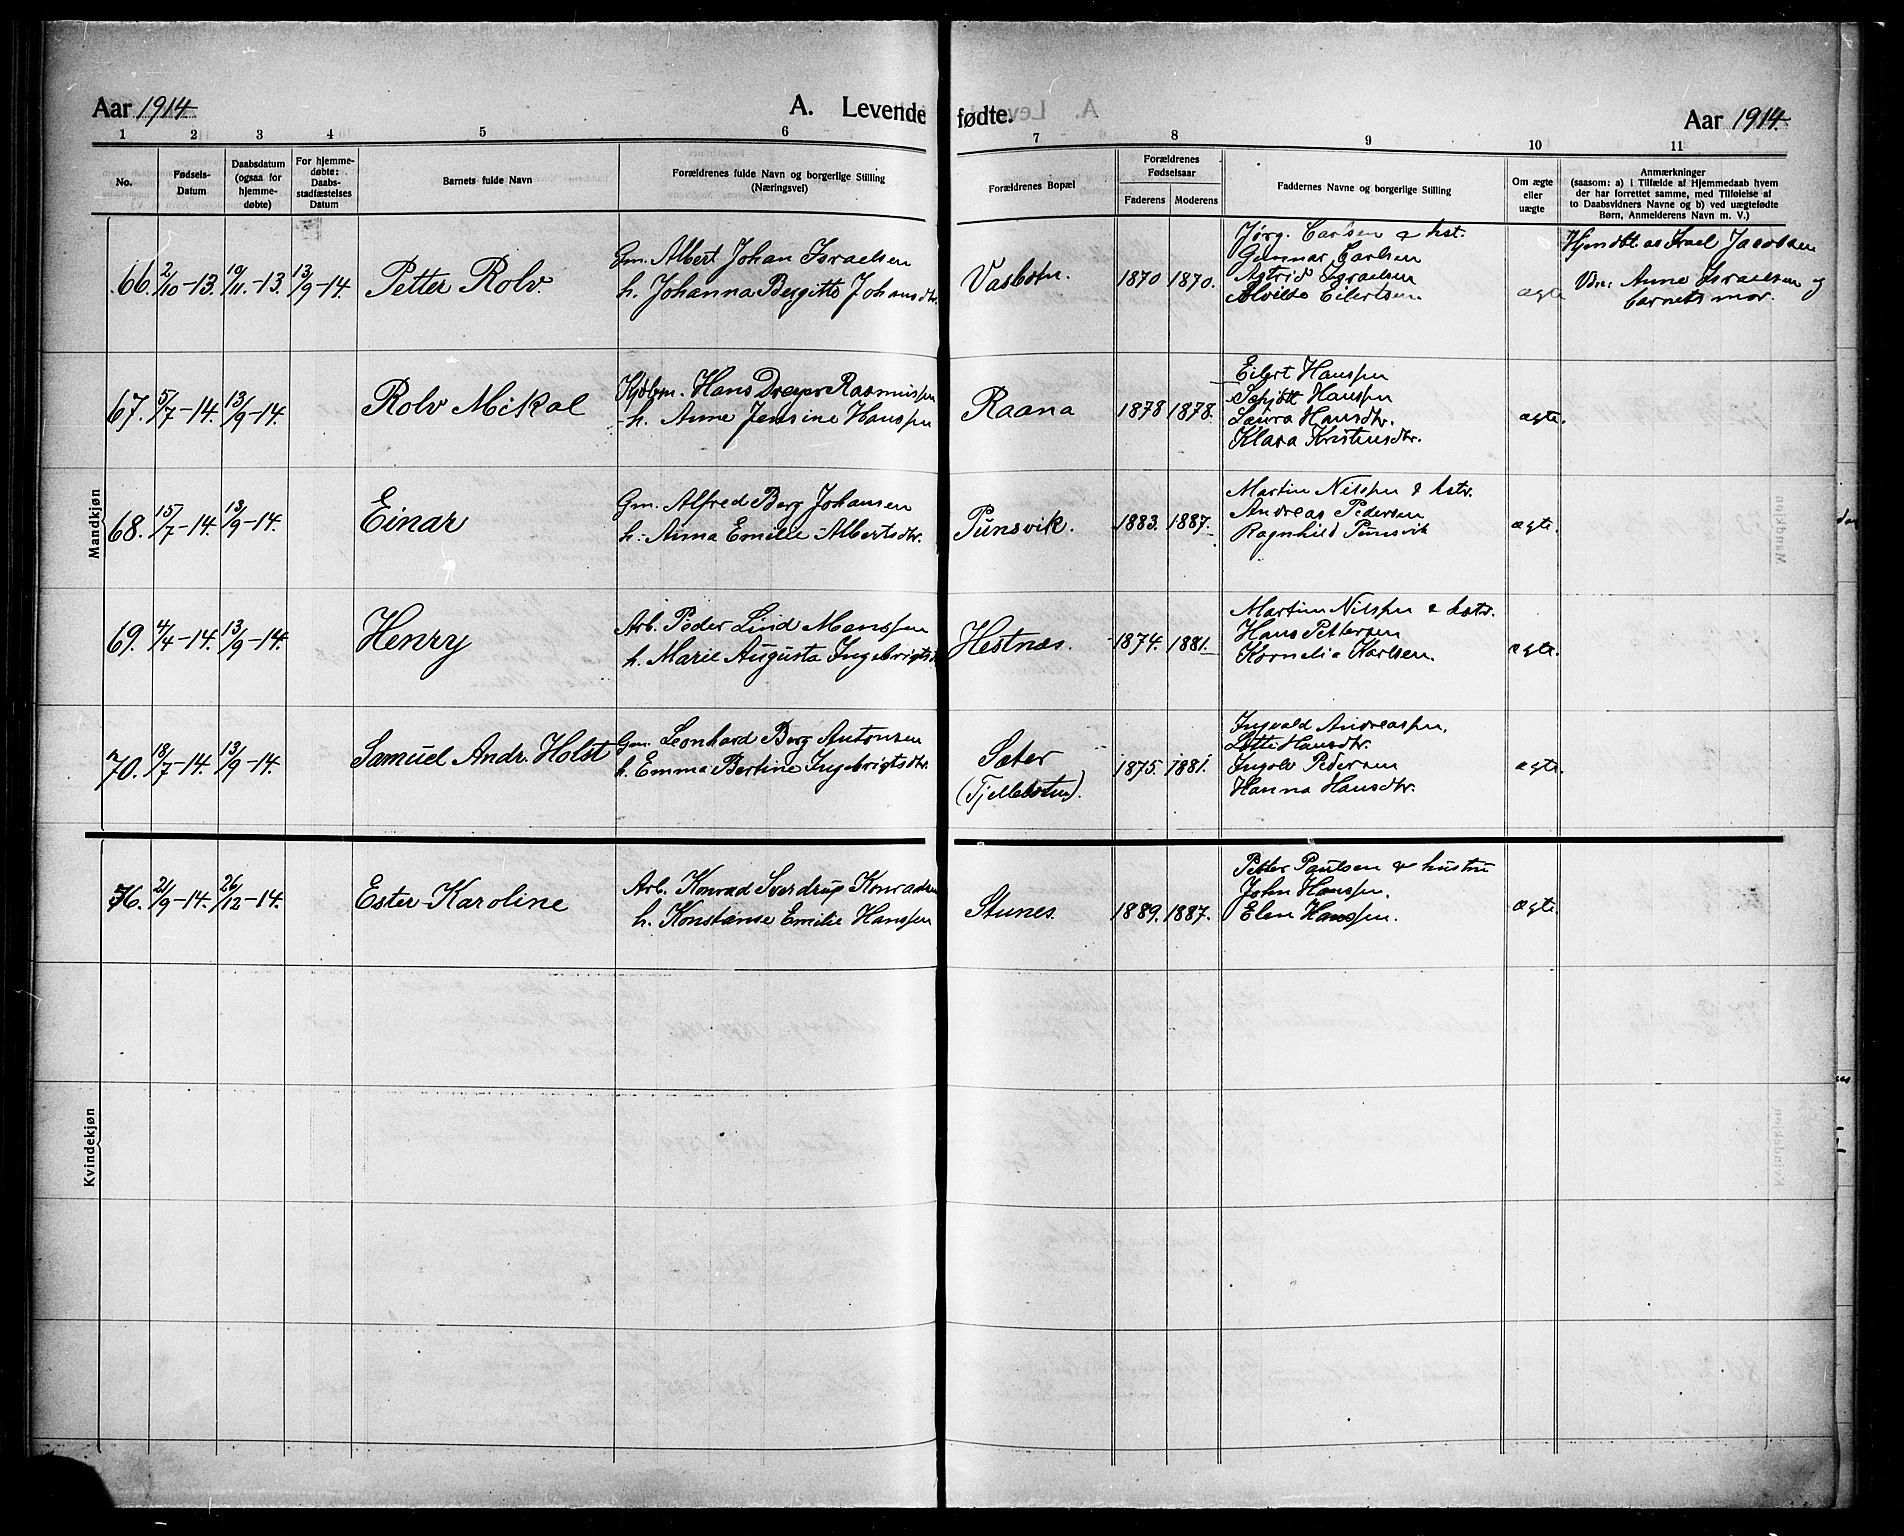 Aar 1914
A. Levende fødte.
Aar 1914.
1 2 3 4 5 6 7 8 9 10 11
No.
Fødsels-Datum
Daabsdatum (ogsaa for hjemme-døbte)
For hjemme-døbte: Daabs-stadfæstelses Datum
Barnets fulde Navn
Forældrenes fulde Navn og borgerlige Stilling (Næringsvei)
Forældrenes Bopæl
Forældrenes Fødselsaar
Faderens Moderens
Faddernes Navne og borgerlige Stilling
Om ægte eller uægte
Anmærkninger
(saasom: a) i Tilfælde af Hjemmedaab hvem
der har forrettet samme, med Tilføielse af
to Daabsvidners Navne og b) ved uægtefødte
Børn, Anmelderens Navn m. V.)
Mandkjøn
66. 2/10-13. 19/11-13. 13/9-14. Petter Rolv.
Gm. Albert Johan Israelsen
h. Johanna Bergitte Johansdtr.
Vasbotn. 1870 1870.
Jørg. Carlsen & hst.
Gunnar Carlsen
Astrid Israelsen
Alvilde Eilertsen
ægte
Hjemdbt. av Israel Jacobsen
Vdn: Anne Israelsen og
barnets mor.
67. 5/7-14. 13/9-14. Rolv Mikal
Hans Dreyer Rasmussen
h. Anne Jensine Hanssen
Raana 1878 1878.
Eilert Hanssen
Schjött Hanssen
Laura Hansdtr.
Klara Kristensdtr.
ægte.
68. 15/7-14. 13/9-14. Einar
Gm. Alfred Berg Johansen
h. Anna Emilie Albertsdtr.
Punsvik. 1883. 1887.
Martin Nilssen & hstr.
Andreas Pedersen
Ragnhild Punsvik
ægte.
69. 4/4-14. 13/9-14. Henry
Arb. Peder Lind Monssen
h. Marie Augusta Ingebrigtsd
Hestnæs. 1874. 1881.
Martin Nilssen & hstr.
Hans Pettersen
Kornelia Karlsen.
ægte.
70. 18/7-14. 13/9-14. Samuel Andr. Holst
Gm. Leonhard Berg Antonsen
h. Emma Bertine Ingebrigtsdtr.
Sæter
(Fjellbotnen). 1875. 1881.
Ingvald Andreassen,
Lotte Hansdtr.
Ingolv Pedersen
Hanna Hansdtr.
ægte.
Kvindekjøn
76. 21/9-14. 26/12-14. Ester Karoline
Arb. Konrad Sverdrup Konradsen
h. Konstanse Emilie Hanssen
Stunes. 1889. 1887.
Petter Paulsen & hustru
John Hanssen.
Elen Hanssen.
ægte.